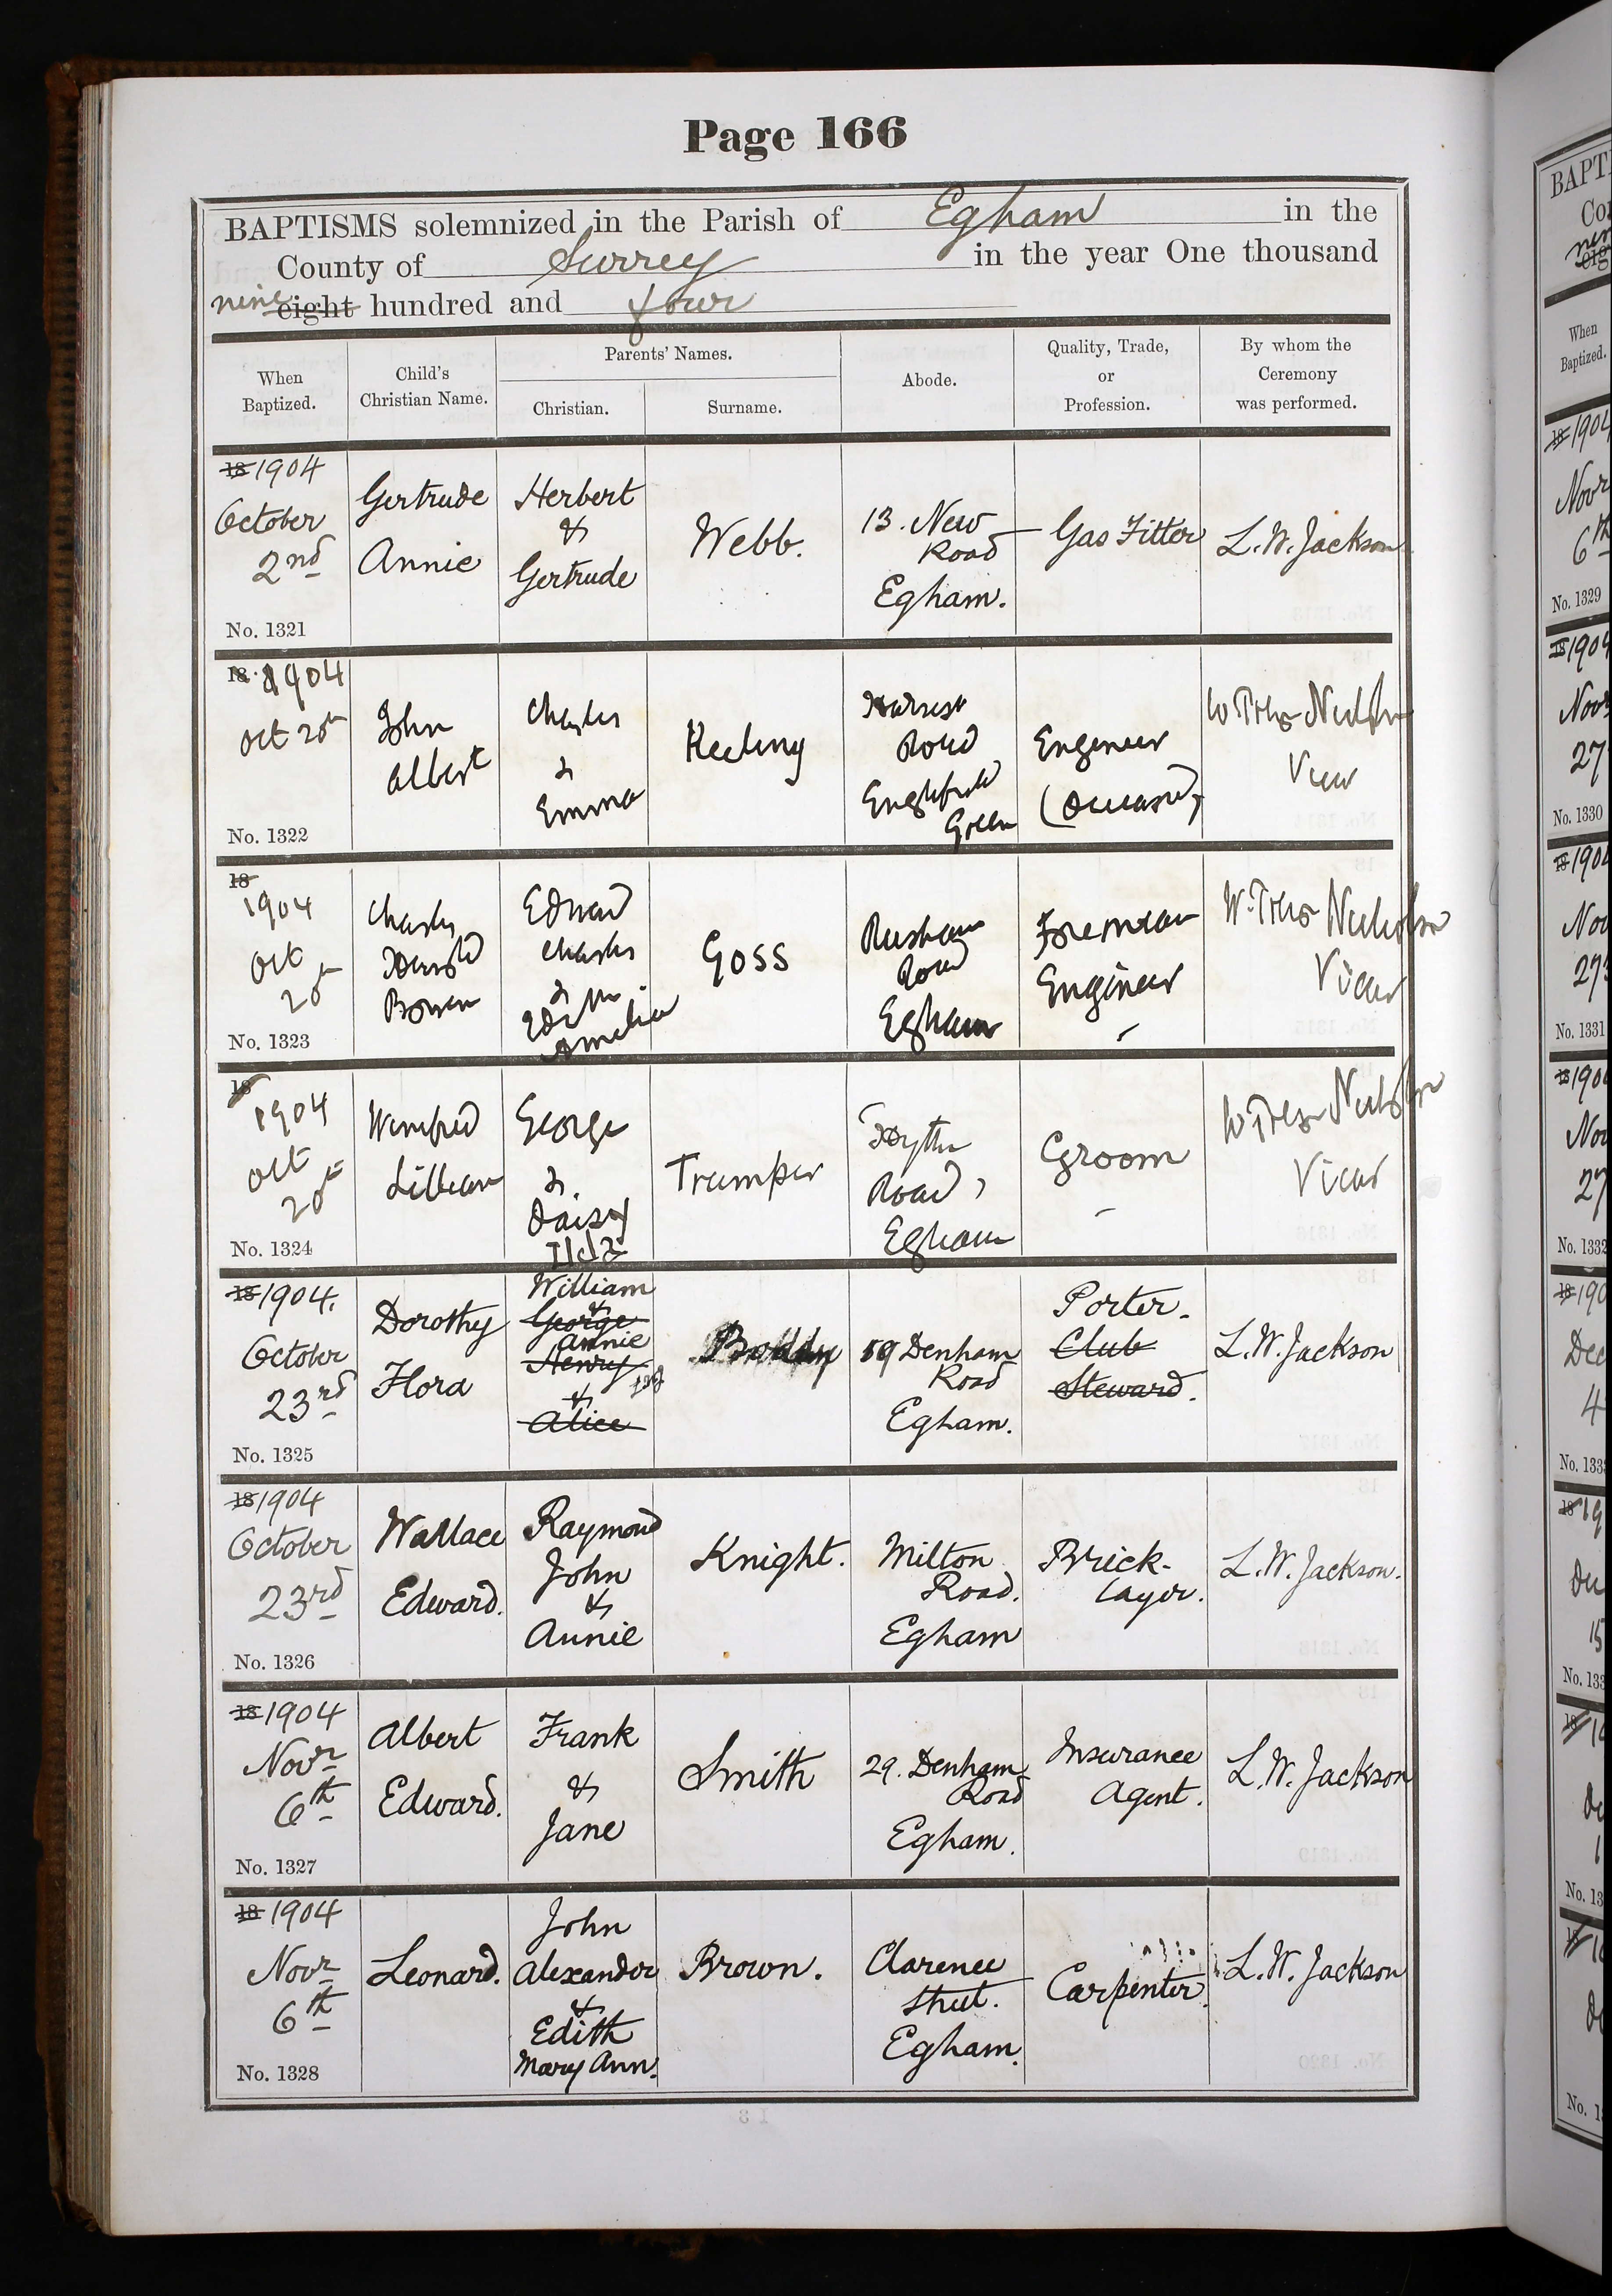 Page 166
BAPTISMS solemnized in the Parish of Egham in the
County of Surrey in the year One thousand
nine eight hundred and four
When Baptized.
Child's Christian Name.
Parents' Names.
Christian.
Surname.
Abode.
Quality, Trade, or Profession.
By whom the Ceremony was performed.
18 1904
October
2nd
No. 1321
Gertrude
Annie
Herbert
&
Gertrude
Webb.
13. New
Road
Egham.
Gas Fitter
L. W. Jackson
18 1904
Oct 20th
No. 1322
John
Albert
Charles
&
Emma
Keeling
Harvest
Road
Englefield
Green
Engineer
(Deceased)
Vicar
18
1904
Oct
20th
No. 1323
Charles
Harold
Edward
Charles
&
Edith
Amelia
Goss
Rusham
Road
Egham
Foreman
Engineer
Vicar
18
1904
Oct
20th
No. 1324
Winifred
Lillian
George
&
Daisy
Trumper
Hythe
Road,
Egham
Groom
Vicar
18 1904.
October
23rd
No. 1325
Dorothy
Flora
William
&
George
Annie
Henry
&
Alice
59 Denham
Road
Egham.
Porter.
Club
Steward.
L. W. Jackson
18 1904
October
23rd
No. 1326
Wallace
Edward.
Raymond
John
&
Annie
Knight.
Milton
Road.
Egham
Brick-
layer.
L. W. Jackson.
18 1904
Novr
6th
No. 1327
Albert
Edward.
Frank
&
Jane
Smith
29. Denham
Road
Egham.
Insurance
Agent.
L. W. Jackson
18 1904
Novr
6th
No. 1328
Leonard.
John
Alexander
&
Edith
Mary Ann.
Brown.
Clarence
Street.
Egham.
Carpenter.
L. W. Jackson
When
Baptized.
No. 1329
No. 1330
No. 1331
No. 1332